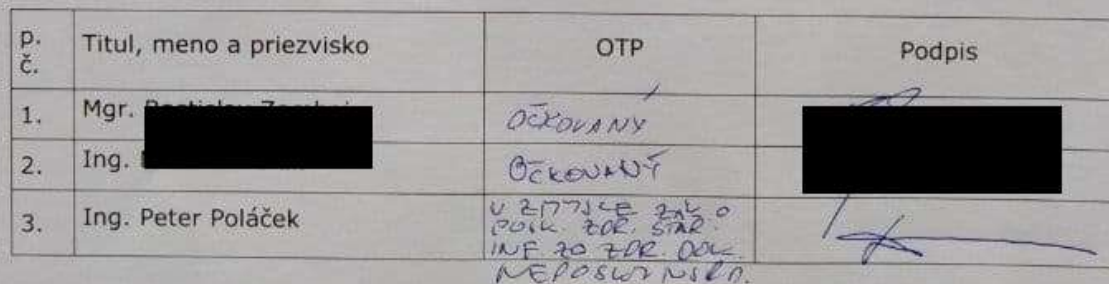 p. č. Titul, meno a priezvisko OTP Podpis
1. Mgr. OČKOVANÝ
2. Ing. OČKOVANÝ
3. Ing. Peter Poláček V ZMYSLE ZÁK O
POSK. ZDR. STAR.
INF ZO ZDR. DOK.
NEPOSKYTNSRD.